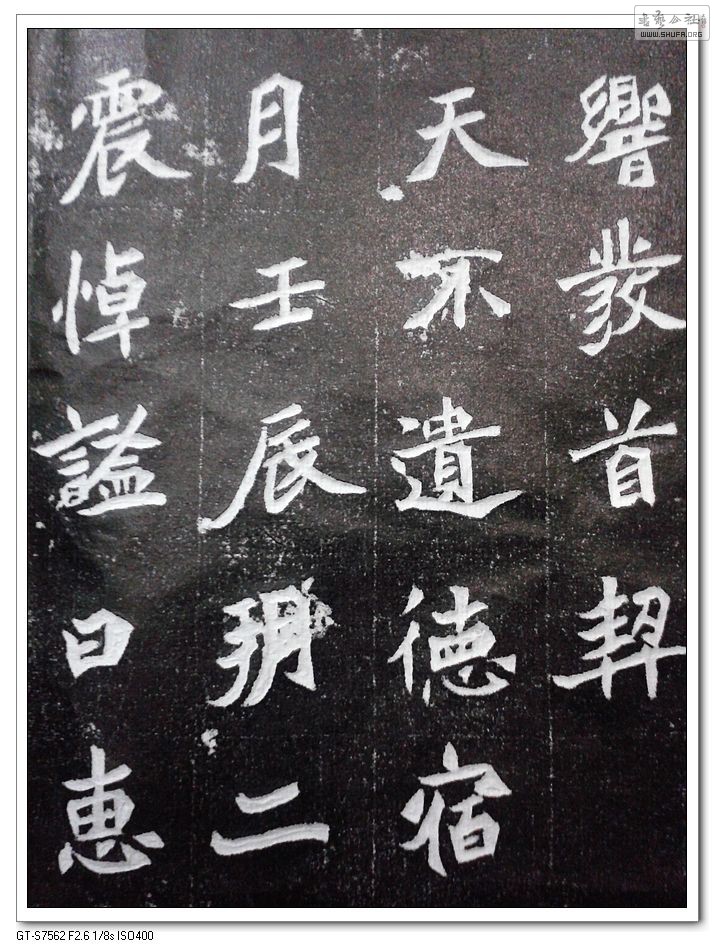 書藝公社
WWW.SHUFA.ORG
響發首契
天不遺德宿
月壬辰朔二
震悼謚曰惠
GT-S7562 F2.6 1/8s ISO400